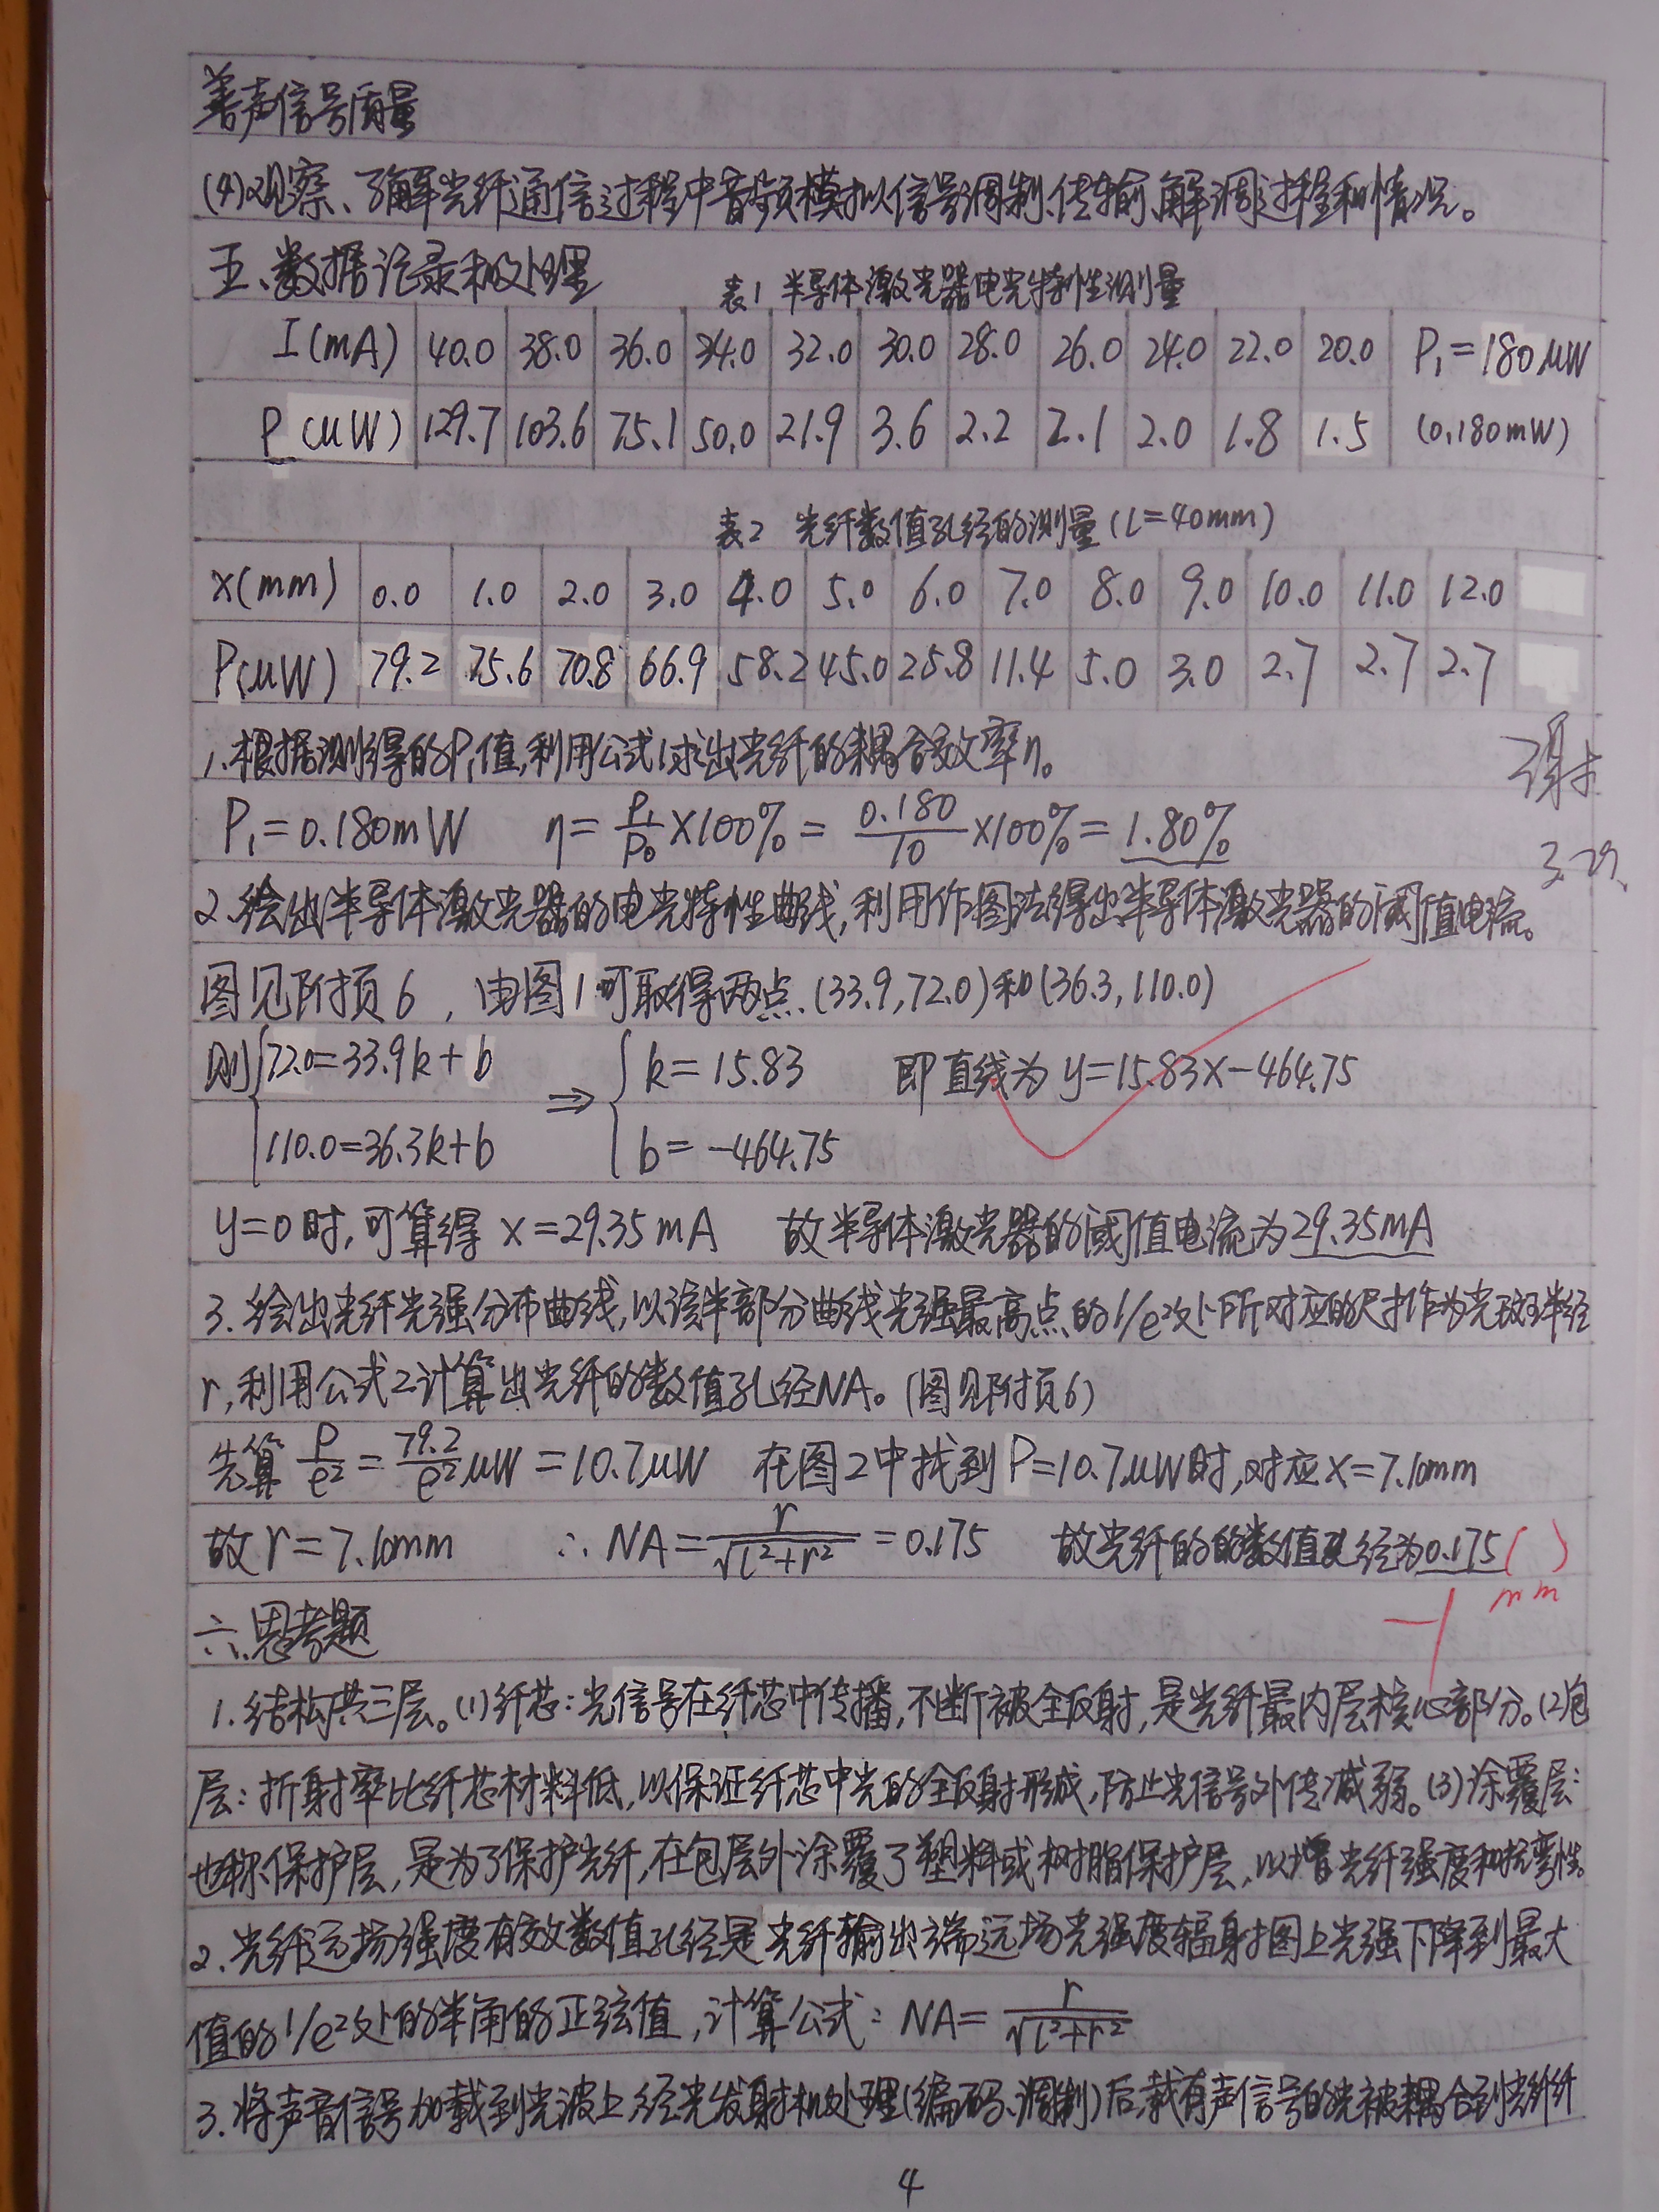 善声信号质量
(4)观察、了解光纤通信过程中音频模拟信号调制、传输、解调过程和情况。
五、数据记录和处理
表1 半导体激光器电光特性测量
I(mA) 40.0 38.0 36.0 34.0 32.0 30.0 28.0 26.0 24.0 22.0 20.0 P₁=180μW
P(μW) 129.7 103.6 75.1 50.0 21.9 3.6 2.2 2.1 2.0 1.8 1.5 (0.180mW)
表2 光纤数值孔径的测量(L=40mm)
x(mm) 0.0 1.0 2.0 3.0 4.0 5.0 6.0 7.0 8.0 9.0 10.0 11.0 12.0
P(μW) 79.2 75.6 70.8 66.9 58.2 45.0 25.8 11.4 5.0 3.0 2.7 2.7 2.7
1.根据测得的P₁值,利用公式1求出光纤的耦合效率η。
P₁=0.180mW η=P₁/P₀×100%=0.180/10×100%=1.80%
3.29.
2.绘出半导体激光器的电光特性曲线,利用作图法得出半导体激光器的阈值电流。
图见附页6,由图1可取得两点(33.9,72.0)和(36.3,110.0)
则{72.0=33.9k+b ⇒ {k=15.83 即直线为y=15.83x-464.75
110.0=36.3k+b b=-464.75
y=0时,可算得x=29.35mA 故半导体激光器的阈值电流为29.35mA
3.绘出光纤光强分布曲线,以该半部分曲线光强最高点的1/e²处所对应的尺寸作为光斑半径
r,利用公式2计算出光纤的数值孔径NA。(图见附页6)
先算P/e²=79.2/e²μW=10.7μW 在图2中找到P=10.7μW时,对应x=7.10mm
故r=7.10mm ∴NA=r/√(l²+r²)=0.175 故光纤的的数值孔径为0.175( )
-1 mm
六.思考题
1.结构共三层。(1)纤芯:光信号在纤芯中传播,不断被全反射,是光纤最内层核心部分。(2)包
层:折射率比纤芯材料低,以保证纤芯中光的全反射形成,防止光信号外传减弱。(3)涂覆层:
也称保护层,是为了保护光纤,在包层外涂覆了塑料或树脂保护层,以增光纤强度和抗弯性。
2.光纤远场强度有效数值孔径是光纤输出端远场光强度辐射图上光强下降到最大
值的1/e²处的半角的正弦值,计算公式:NA=r/√(l²+r²)
3.将声音信号加载到光波上,经光发射机处理(编码、调制)后,载有声信号的光被耦合到光纤纤
4